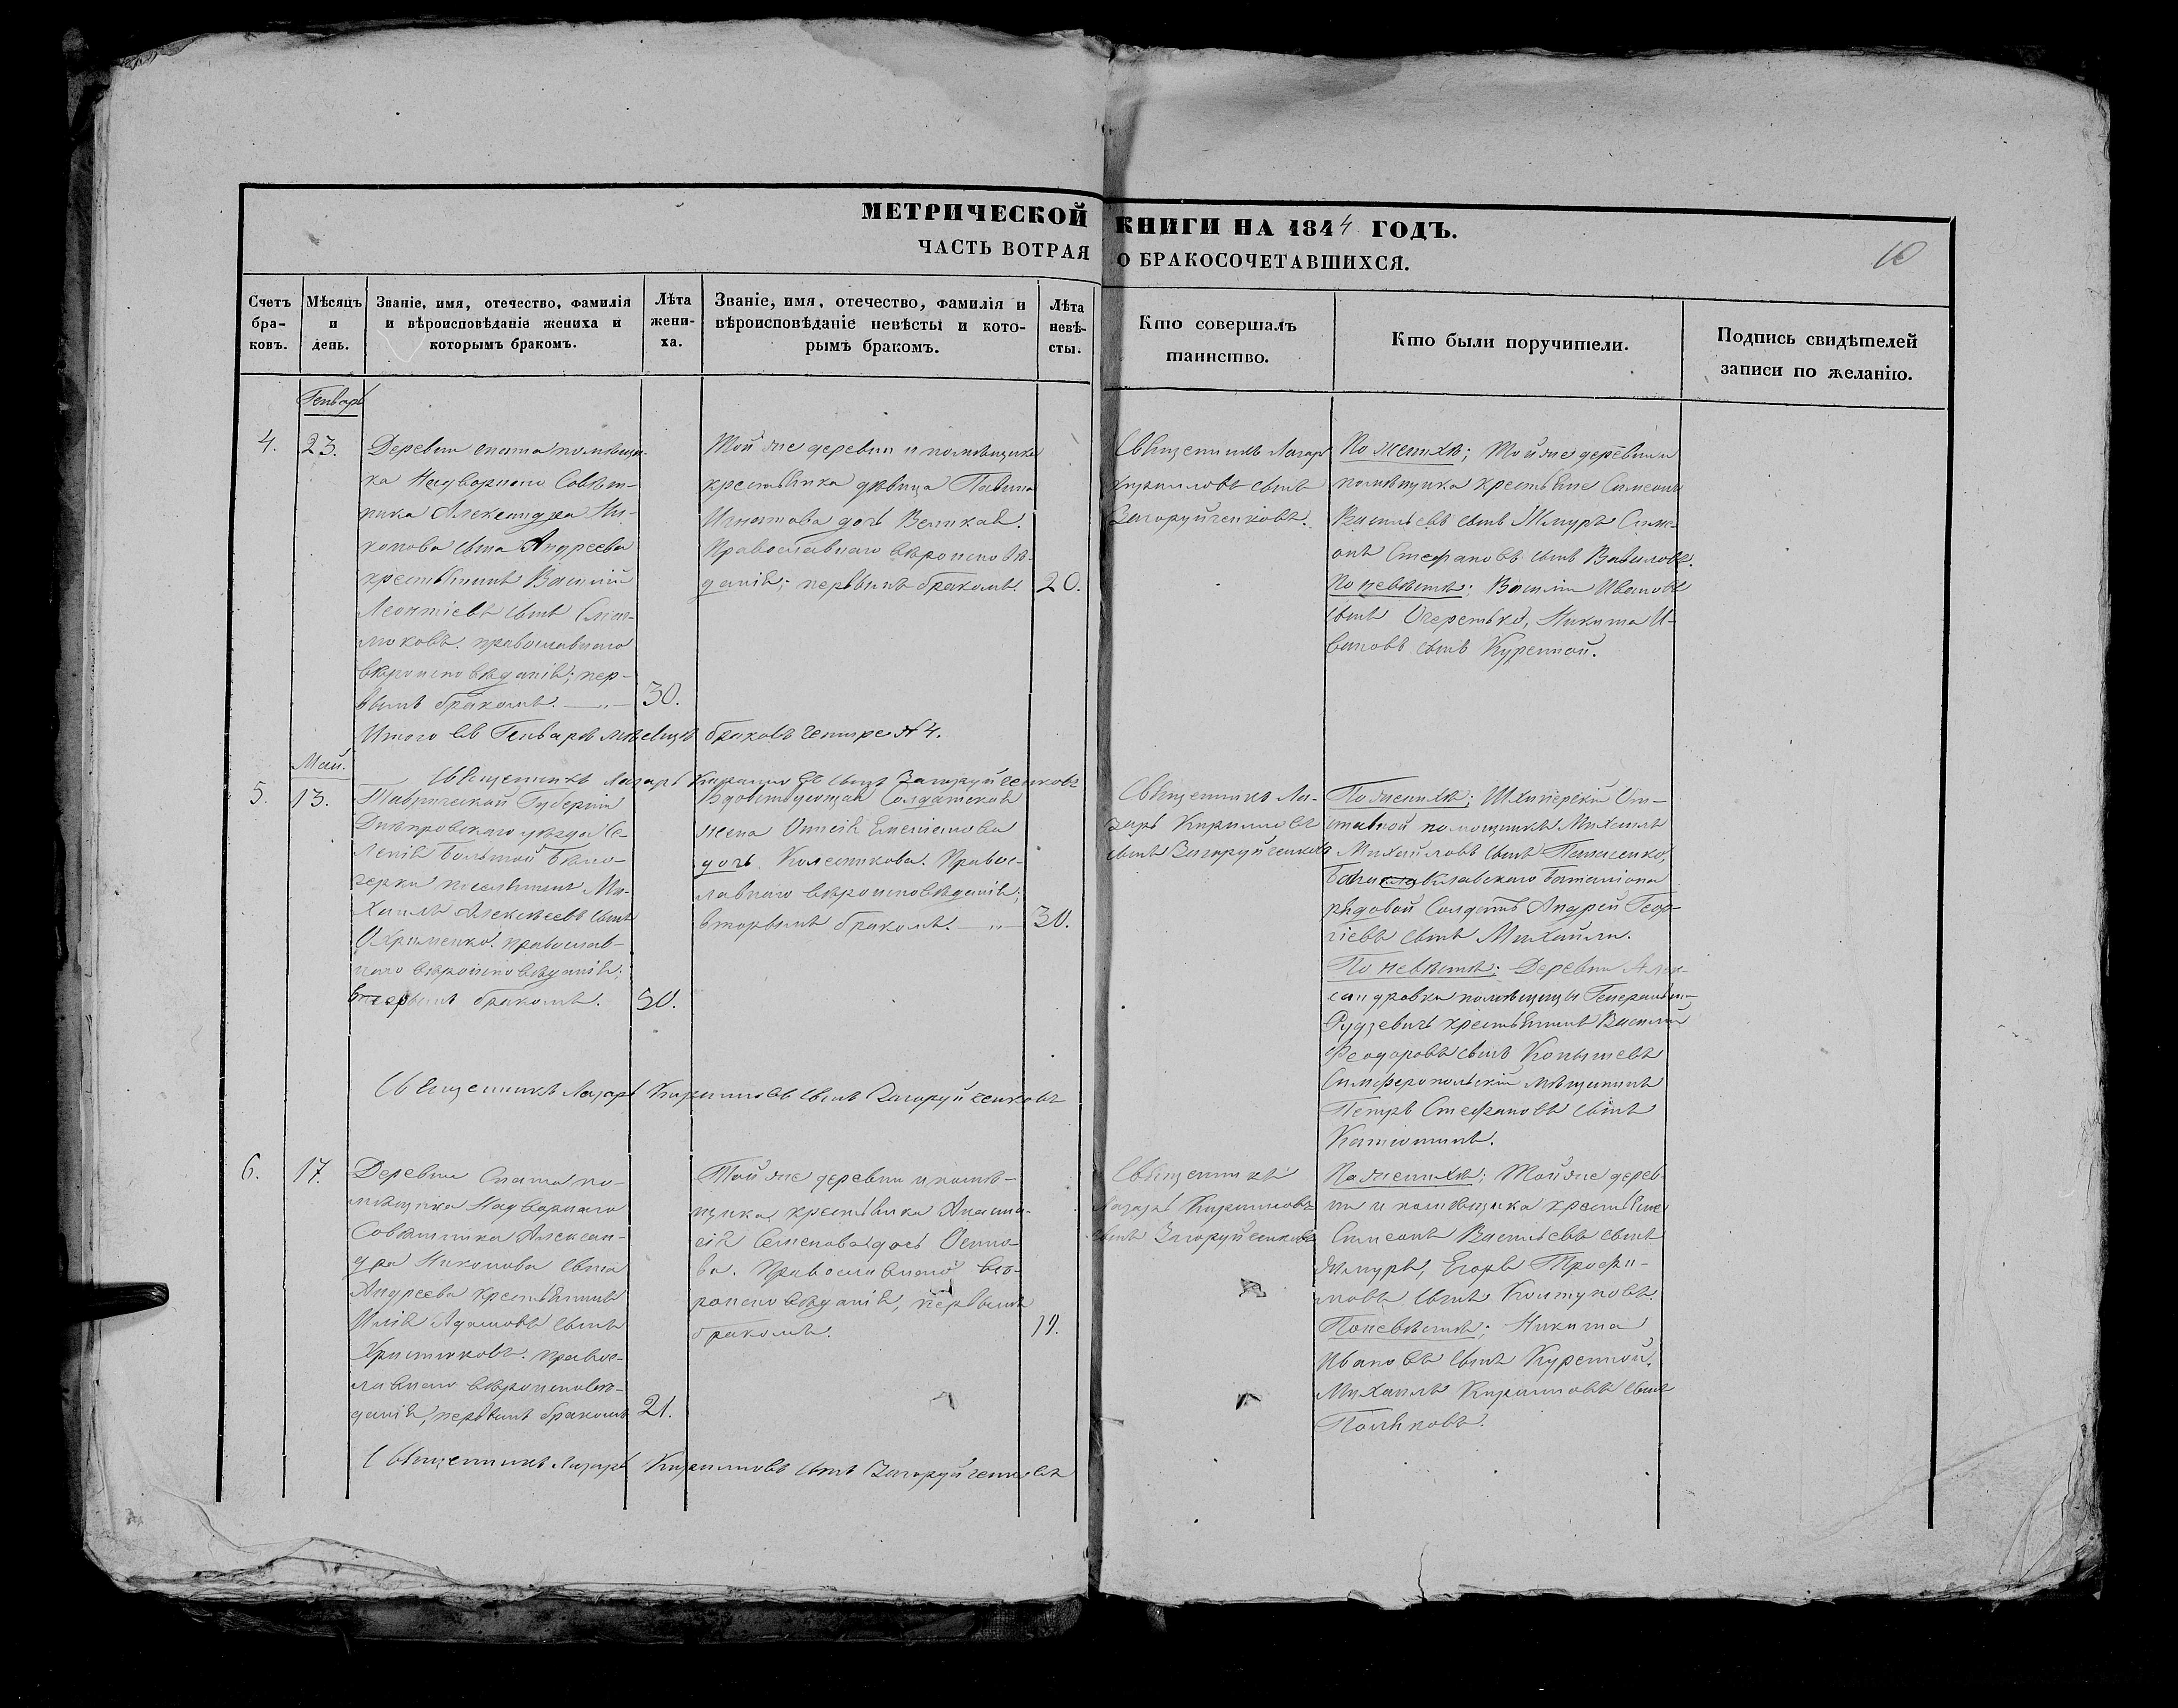 МЕТРИЧЕСКОЙ КНИГИ НА 1844 ГОДЪ.
ЧАСТЬ ВОТРАЯ О БРАКОСОЧЕТАВШИХСЯ.
10
Счетъ бра-ковъ.
Мѣсяцъ и день.
Званіе, имя, отечество, фамилія и вѣроисповѣданіе жениха и которымъ бракомъ.
Лѣта жени-ха.
Званіе, имя, отечество, фамилія и вѣроисповѣданіе невѣсты и кото-рымъ бракомъ.
Лѣта невѣ-сты.
Кто совершалъ таинство.
Кто были поручители.
Подпись свидѣтелей записи по желанію.
Генварь
4.
23.
Деревни помѣщи-
ка Надворнаго Совѣт-
ника Александра Ни-
конова сына Андреева
крестьянинъ Василій
Леонтіевъ сынъ
православнаго
вѣроисповѣданія; пер-
вымъ бракомъ.
30.
Той же деревни и помѣщика
крестьянка дѣвица
Игнатова дочь Великая.
Православнаго вѣроисповѣ-
данія; первымъ бракомъ.
20.
Священникъ Лазарь
Кирилловъ сынъ
Загоруйченковъ.
По женихѣ; Той же деревни и
помѣщика крестьяне Симеонъ
Васильевъ сынъ Жмуръ Симе-
онъ Стефановъ сынъ Вавиловъ.
По невѣстѣ: Василій Ивановъ
сынъ Очередько, Никита И-
вановъ сынъ Куренной.
Итого въ Генварѣ мѣсяцѣ браковъ четыре № 4.
Май.
Священникъ Лазарь Кирилловъ сынъ Загоруйченковъ
5.
13.
Таврической Губерніи
Днѣпровскаго уѣзда се-
ленія Большой Бело-
зерки поселянинъ Ми-
хаилъ Алексѣевъ сынъ
Охрименко. православ-
наго вѣроисповѣданія;
вторымъ бракомъ.
50.
Вдовствующая Солдатская
жена Емеліанова
дочь Колесникова. Правос-
лавнаго вѣроисповѣданія;
вторымъ бракомъ.
30.
Священникъ Ла-
зарь Кирилловъ
сынъ Загоруйченковъ
По женихѣ; Шхиперскій От-
ставной помощникъ Михаилъ
Михайловъ сынъ
Балаклавскаго Баталіона
рядовой Солдатъ Андрей Геор-
гіевъ сынъ Михайли.
По невѣстѣ: Деревни Алек-
сандровки помѣщицы Генеральши
Рудзевичъ крестьянинъ Василій
Феодоровъ сынъ
Симферопольскій мѣщанинъ
Петръ Стефановъ сынъ
Священникъ Лазарь Кирилловъ сынъ Загоруйченковъ
6.
17.
Деревни по-
мѣщика Надворнаго
Совѣтника Алексан-
дра Никонова сына
Андреева крестьянинъ
Илія Адамовъ сынъ
правос-
лавнаго вѣроисповѣ-
данія, первымъ бракомъ
21.
Той же деревни и помѣ-
щика крестьянка Анаста-
сія Семенова дочь Осипо-
ва. Православнаго вѣ-
роисповѣданія, первымъ
бракомъ.
19.
Священникъ
Лазарь Кирилловъ
сынъ Загоруйченковъ
По женихѣ; Той же дерев-
ни и помѣщика крестьяне
Симеонъ Васильевъ сынъ
Жмуръ, Егоръ Трофи-
мовъ сынъ Колтуновъ.
По невѣстѣ; Никита
Ивановъ сынъ Куренной.
Михаилъ Кирилловъ сынъ
Поляковъ.
Священникъ Лазарь Кирилловъ сынъ Загоруйченковъ